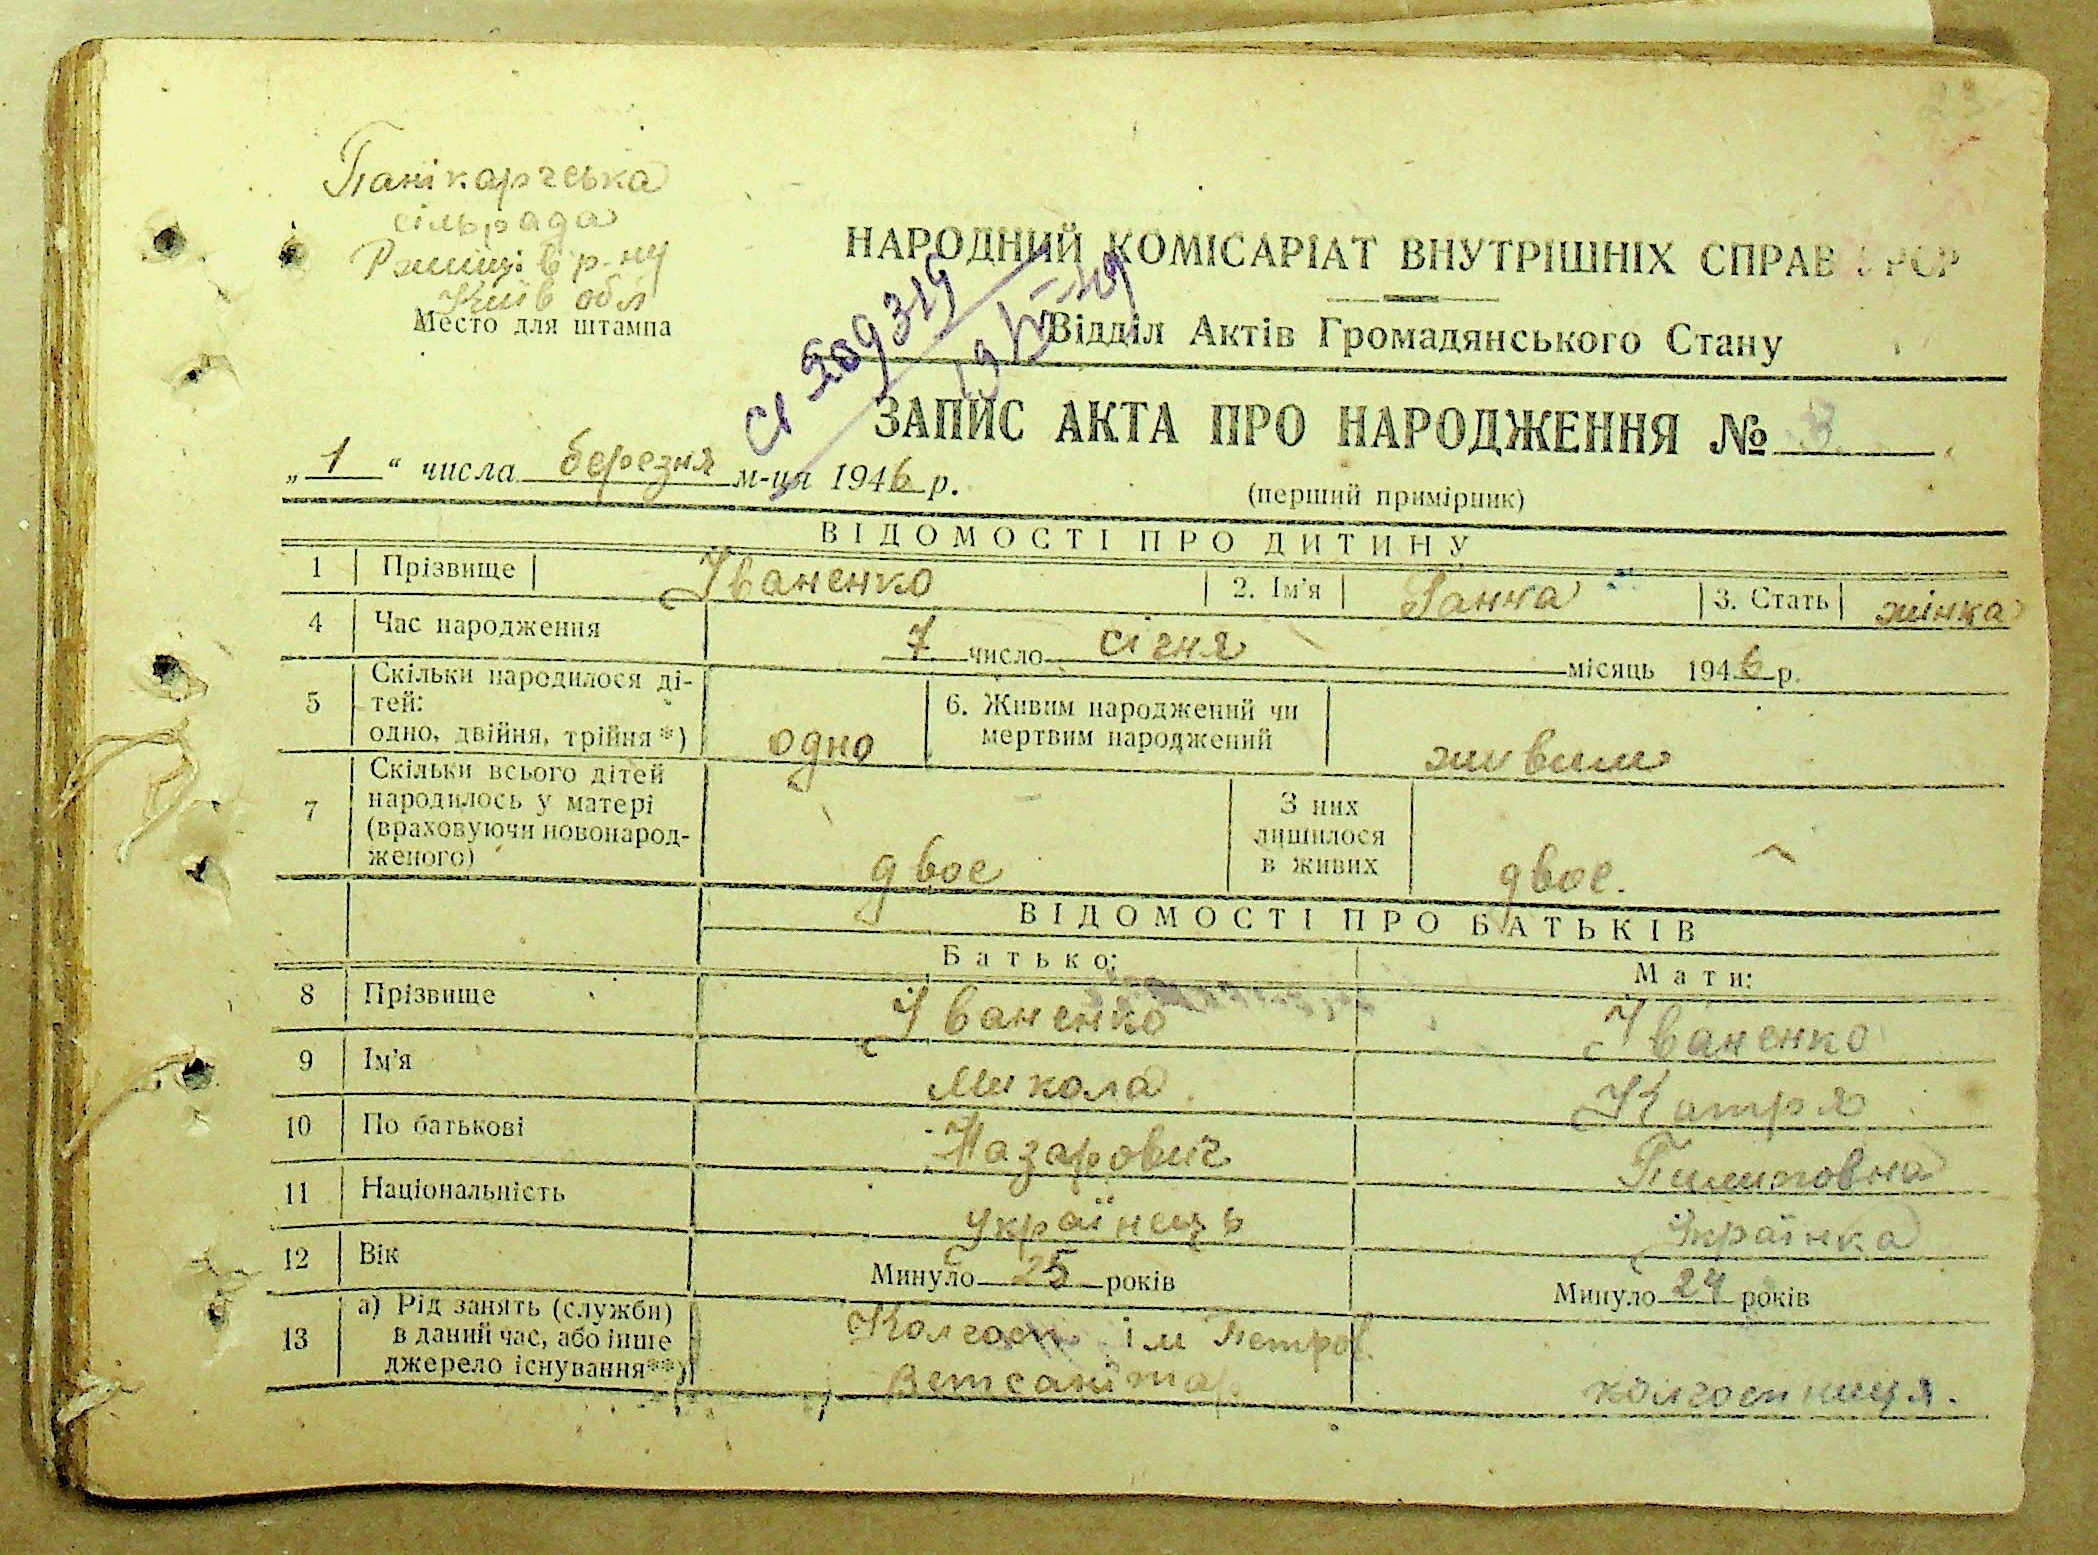 Панікарчська
сільрада
Ржищів р-ну
Київ обл
Место для штампа
НАРОДНИЙ КОМІСАРІАТ ВНУТРІШНІХ СПРАВ УРСР
Відділ Актів Громадянського Стану
ЗАПИС АКТА ПРО НАРОДЖЕННЯ № 3
„1“ числа березня м-ця 1946 р.
(перший примірник)
ВІДОМОСТІ ПРО ДИТИНУ
1 Прізвище Іваненко 2. Ім'я Ганна 3. Стать жінка
4 Час народження 7 число січня місяць 1946 р.
5 Скільки народилося ді-
тей:
одно, двійня, трійня*) одно
6. Живим народжений чи
мертвим народжений живим
7 Скільки всього дітей
народилось у матері
(враховуючи новонарод-
женого) двоє
З них
лишилося
в живих двоє.
ВІДОМОСТІ ПРО БАТЬКІВ
Батько: Мати:
8 Прізвище Іваненко Іваненко
9 Ім'я Микола Катря
10 По батькові Назарович Пилиповна
11 Національність українець Українка
12 Вік Минуло 25 років Минуло 24 років
13 а) Рід занять (служби)
в даний час, або інше
джерело існування**)
Колгосп ім Петров.
Ветсанітар
колгоспниця.